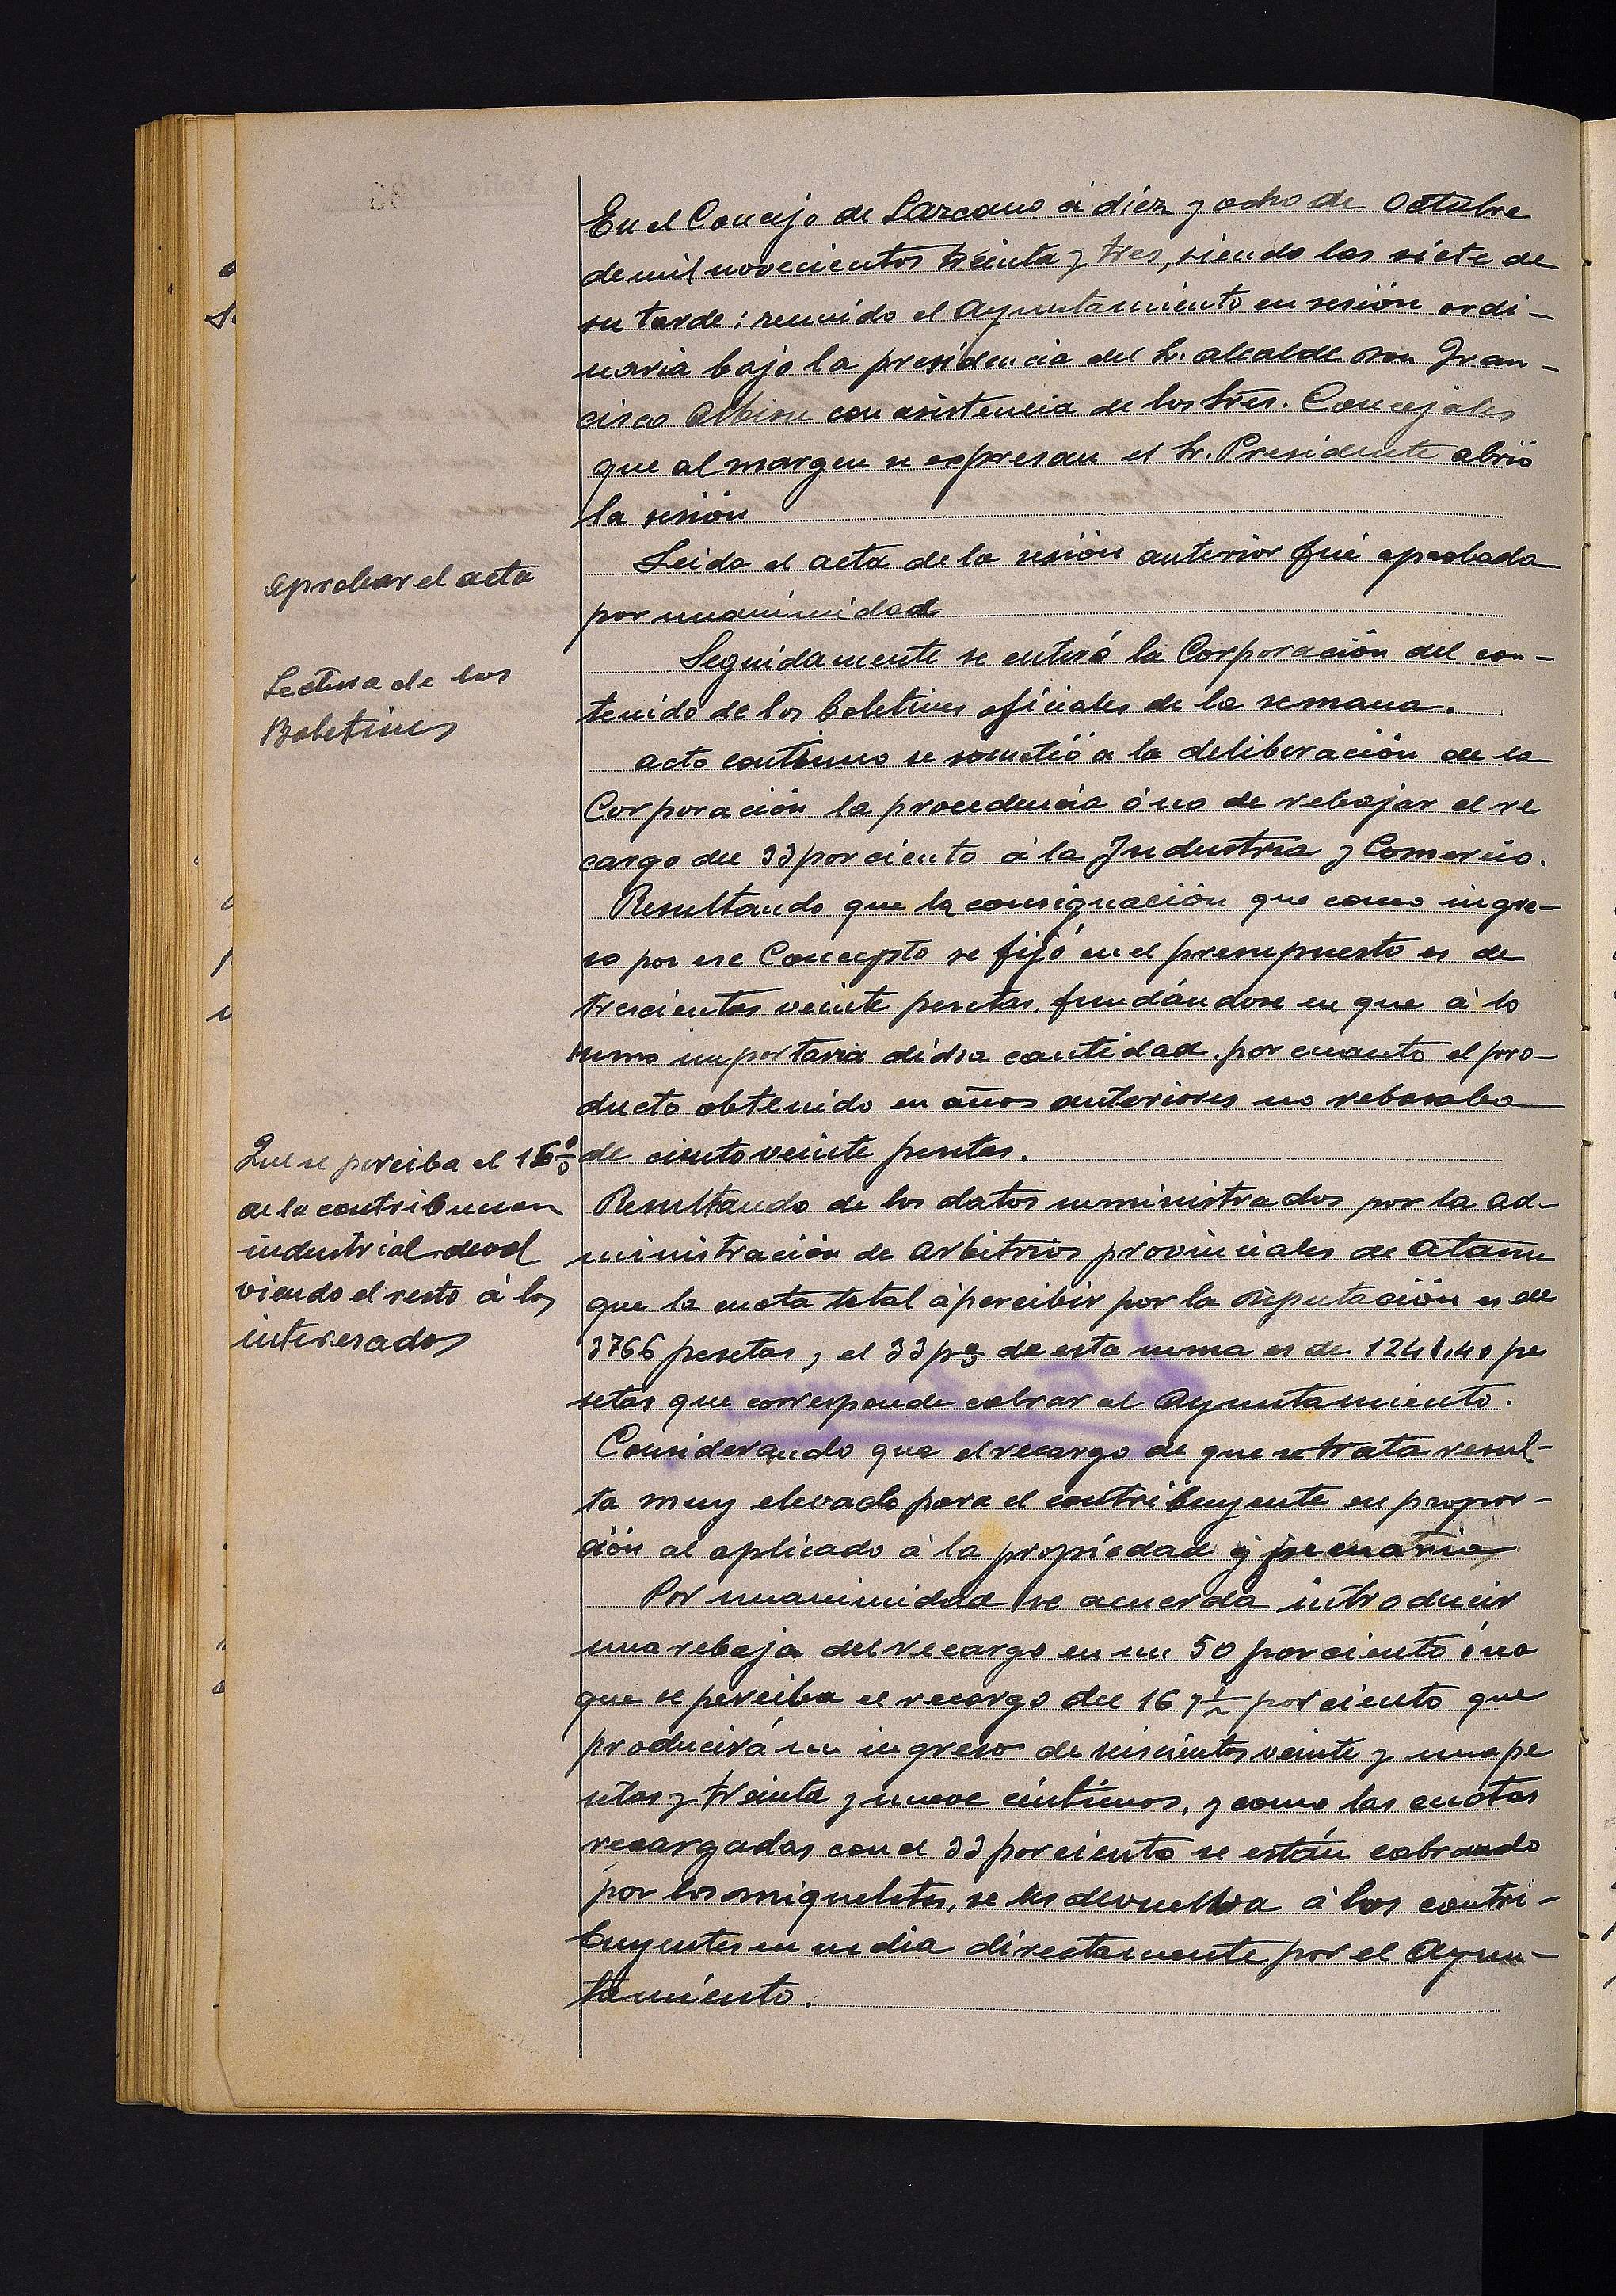 En el Concejo de Lazcano á diez y ocho de Octubre
de mil novecientos treinta y tres, siendo las siete de
su tarde: reunido el Ayuntamiento en sesión ordi-
naria bajo la presidencia del Sr. alcalde Don Fran-
cisco Albisu con asistencia de los Sres. Concejales
que al margen se expresan el Sr. Presidente abrió
la sesión
Aprobar el acta
Leida el acta de la sesión anterior fué aprobada
por unanimidad
Lectura de los
Boletines
Seguidamente se enteró la Corporación del con-
tenido de los boletines oficiales de la semana.
Acto continuo se sometió a la deliberación de la
Corporación la procedencia ó no de rebajar el re
cargo del 33 por ciento á la Industria y Comercio.
Resultando que la consignación que como ingre-
so por ese Concepto se fijó en el presupuesto es de
trescientas veinte pesetas. fundándose en que á lo
sumo importaria dicha cantidad. por cuanto el pro-
ducto obtenido en años anteriores no rebasaba
de ciento veinte pesetas.
Que se perciba el 16 %
de la contribucion
industrial devol
viendo el resto á los
interesados
Resultando de los datos suministrados por la ad-
ministración de Arbitrios provinciales de Ataun
que la cuota total á percibir por la Diputación es de
3766 pesetas, el 33 p% de esta suma es de 1241.40 pe
setas que corresponde cobrar al Ayuntamiento.
Considerando que el recargo de que se trata resul-
ta muy elevado para el contribuyente en propor-
ción al aplicado á la propiedad y pecuaria
Por unanimidad se acuerda introducir
una rebaja del recargo en un 50 por ciento ó sea
que se perciba el recargo del 16 y ½ por ciento que
producirá un ingreso de seiscientas veinte y una pe
setas y treinta y nueve céntimos, y como las cuotas
recargadas con el 33 por ciento se están cobrando
por los miqueletes, se les devuelva á los contri-
buyentes su media directamente por el Ayun-
tamiento.